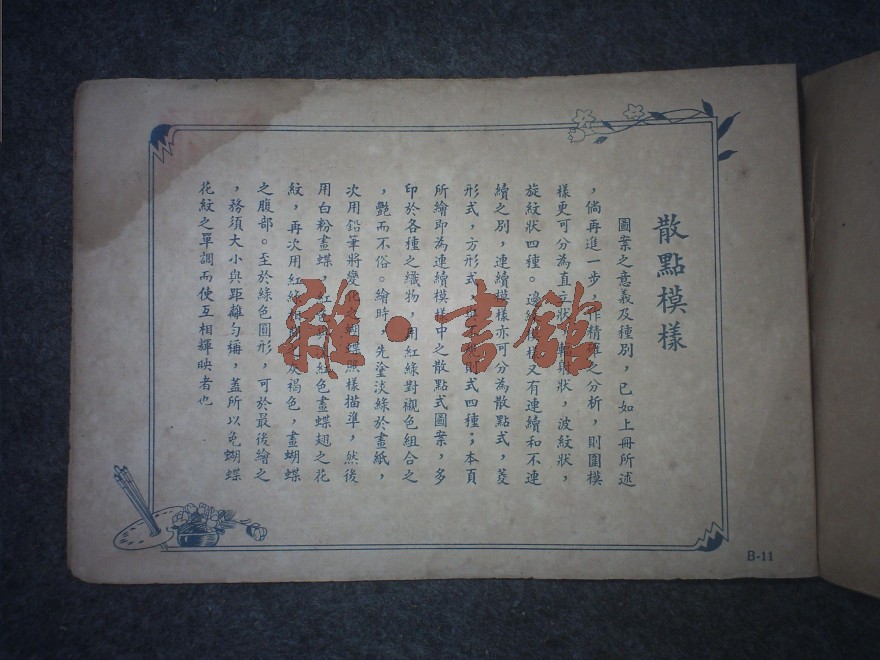 散點模樣
圖案之意義及種別,已如上冊所述
,倘再進一步,作精確之分析,則圖模
樣更可分為直立狀,輻射狀,波紋狀,
旋紋狀四種。邊緣模樣又有連續和不連
續之別,連續模樣亦可分為散點式,菱
形式,方形式,則式四種;本頁
所繪即為連續模樣中之散點式圖案,多
印於各種之織物,用紅綠對襯色組合之
,艷而不俗。繪時,先塗淡綠於畫紙,
次用鉛筆將變化蝴蝶照樣描準,然後
用白粉畫蝶,紅色畫蝶翅之花
紋,再次用紅綠灰褐色,畫蝴蝶
之腹部。至於綠色圓形,可於最後繪之
,務須大小與距離勻稱,蓋所以免蝴蝶
花紋之單調而使互相輝映者也
雜·書館
B-11